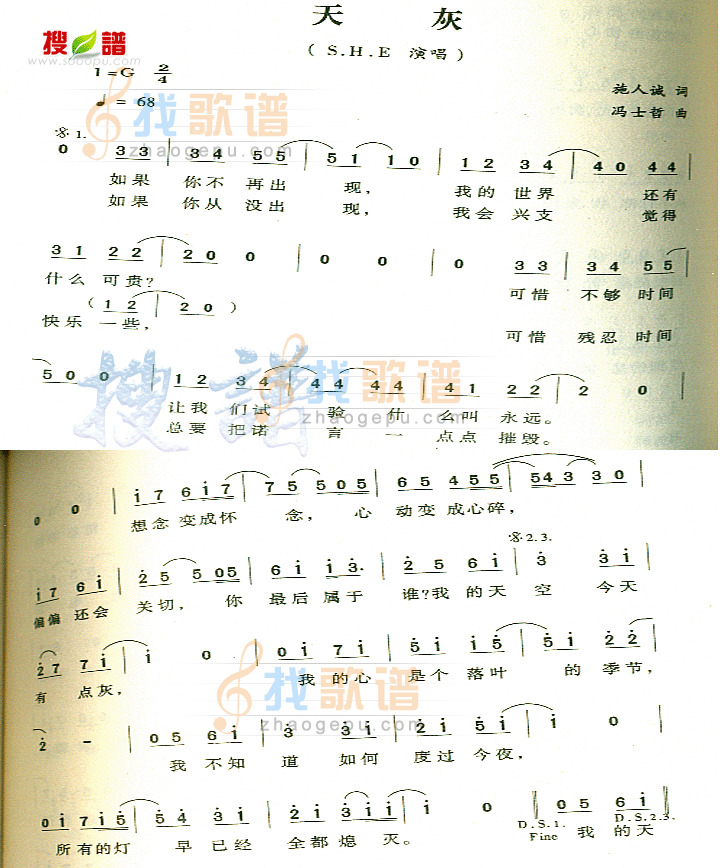 天 灰
搜 譜
www.sooopu.com
( S.H.E 演唱 )
1=G 2/4
♩= 68
施人诚 词
冯士哲 曲
找歌谱
zhaogepu.com
𝄋 1.
0 33 | 34 55 | 51 10 | 12 34 | 40 44
如果 你不 再出 现, 我的 世界 还有
如果 你从 没出 现, 我会 兴支 觉得
31 22 | 200 | 0 0 | 0 33 | 34 55
什么 可贵? 可惜 不够 时间
( 12 | 20 )
快乐 一些, 可惜 残忍 时间
500 | 12 34 | 44 44 | 41 22 | 2 0
搜譜 找歌谱
zhaogepu.com
让我 们试 验 什 么叫 永远。
总要 把诺 言 一 点点 摧毁。
0 0 | i7 6i7 | 75 505 | 65 455 | 543 30
想念 变成怀 念, 心 动变 成心碎,
𝄋 2.3.
i7 6i | 25 505 | 6i i3· | 25 6i | 3 3i
偏偏 还会 关切, 你 最后 属于 谁?我 的天 空 今天
277 7i | i 0 | 0i 7i | 5i i5 | 5i 22
有 点灰, 我 的心 是个 落叶 的 季节,
找歌谱
zhaogepu.com
2 - | 05 6i | 3 3i | 2i 5i | i 0
我 不知 道 如何 度过 今夜,
0i 7i5 | 54 3i | 2i 3ii | i 0 | 05 6i
所有的灯 早 已经 全都 熄 灭。 D.S.1. Fine 我 的天 D.S.2.3.